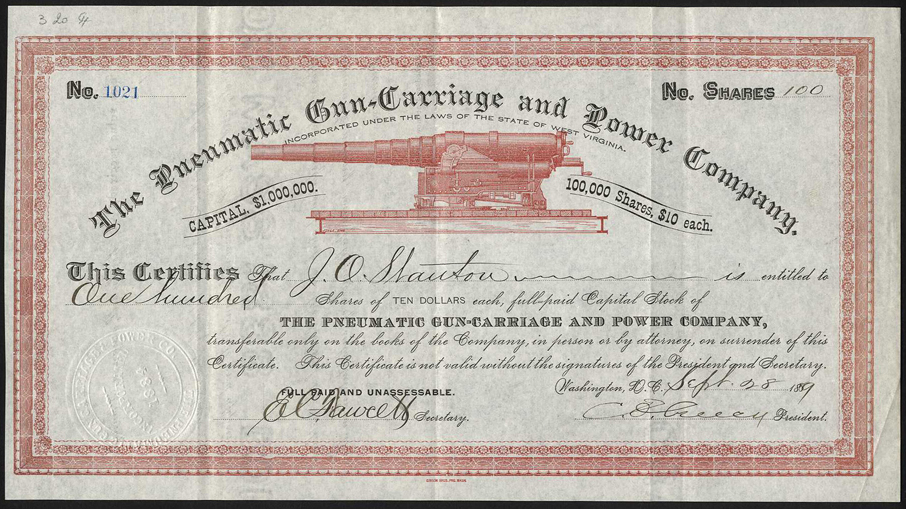 3 20 4
No. 1021
No. Shares 100
The Pneumatic Gun-Carriage and Power Company.
INCORPORATED UNDER THE LAWS OF THE STATE OF WEST VIRGINIA.
CAPITAL, $1.000,000.
100,000 Shares, $10 each.
This Certifies That J. O. Stanton is entitled to
One hundred Shares of TEN DOLLARS each, full-paid Capital Stock of
THE PNEUMATIC GUN-CARRIAGE AND POWER COMPANY,
transferable only on the books of the Company, in person or by attorney, on surrender of this
Certificate. This Certificate is not valid without the signatures of the President and Secretary.
FULL PAID AND UNASSESSABLE.
Washington, D. C. Sept. 28 1889
Secretary.
President.